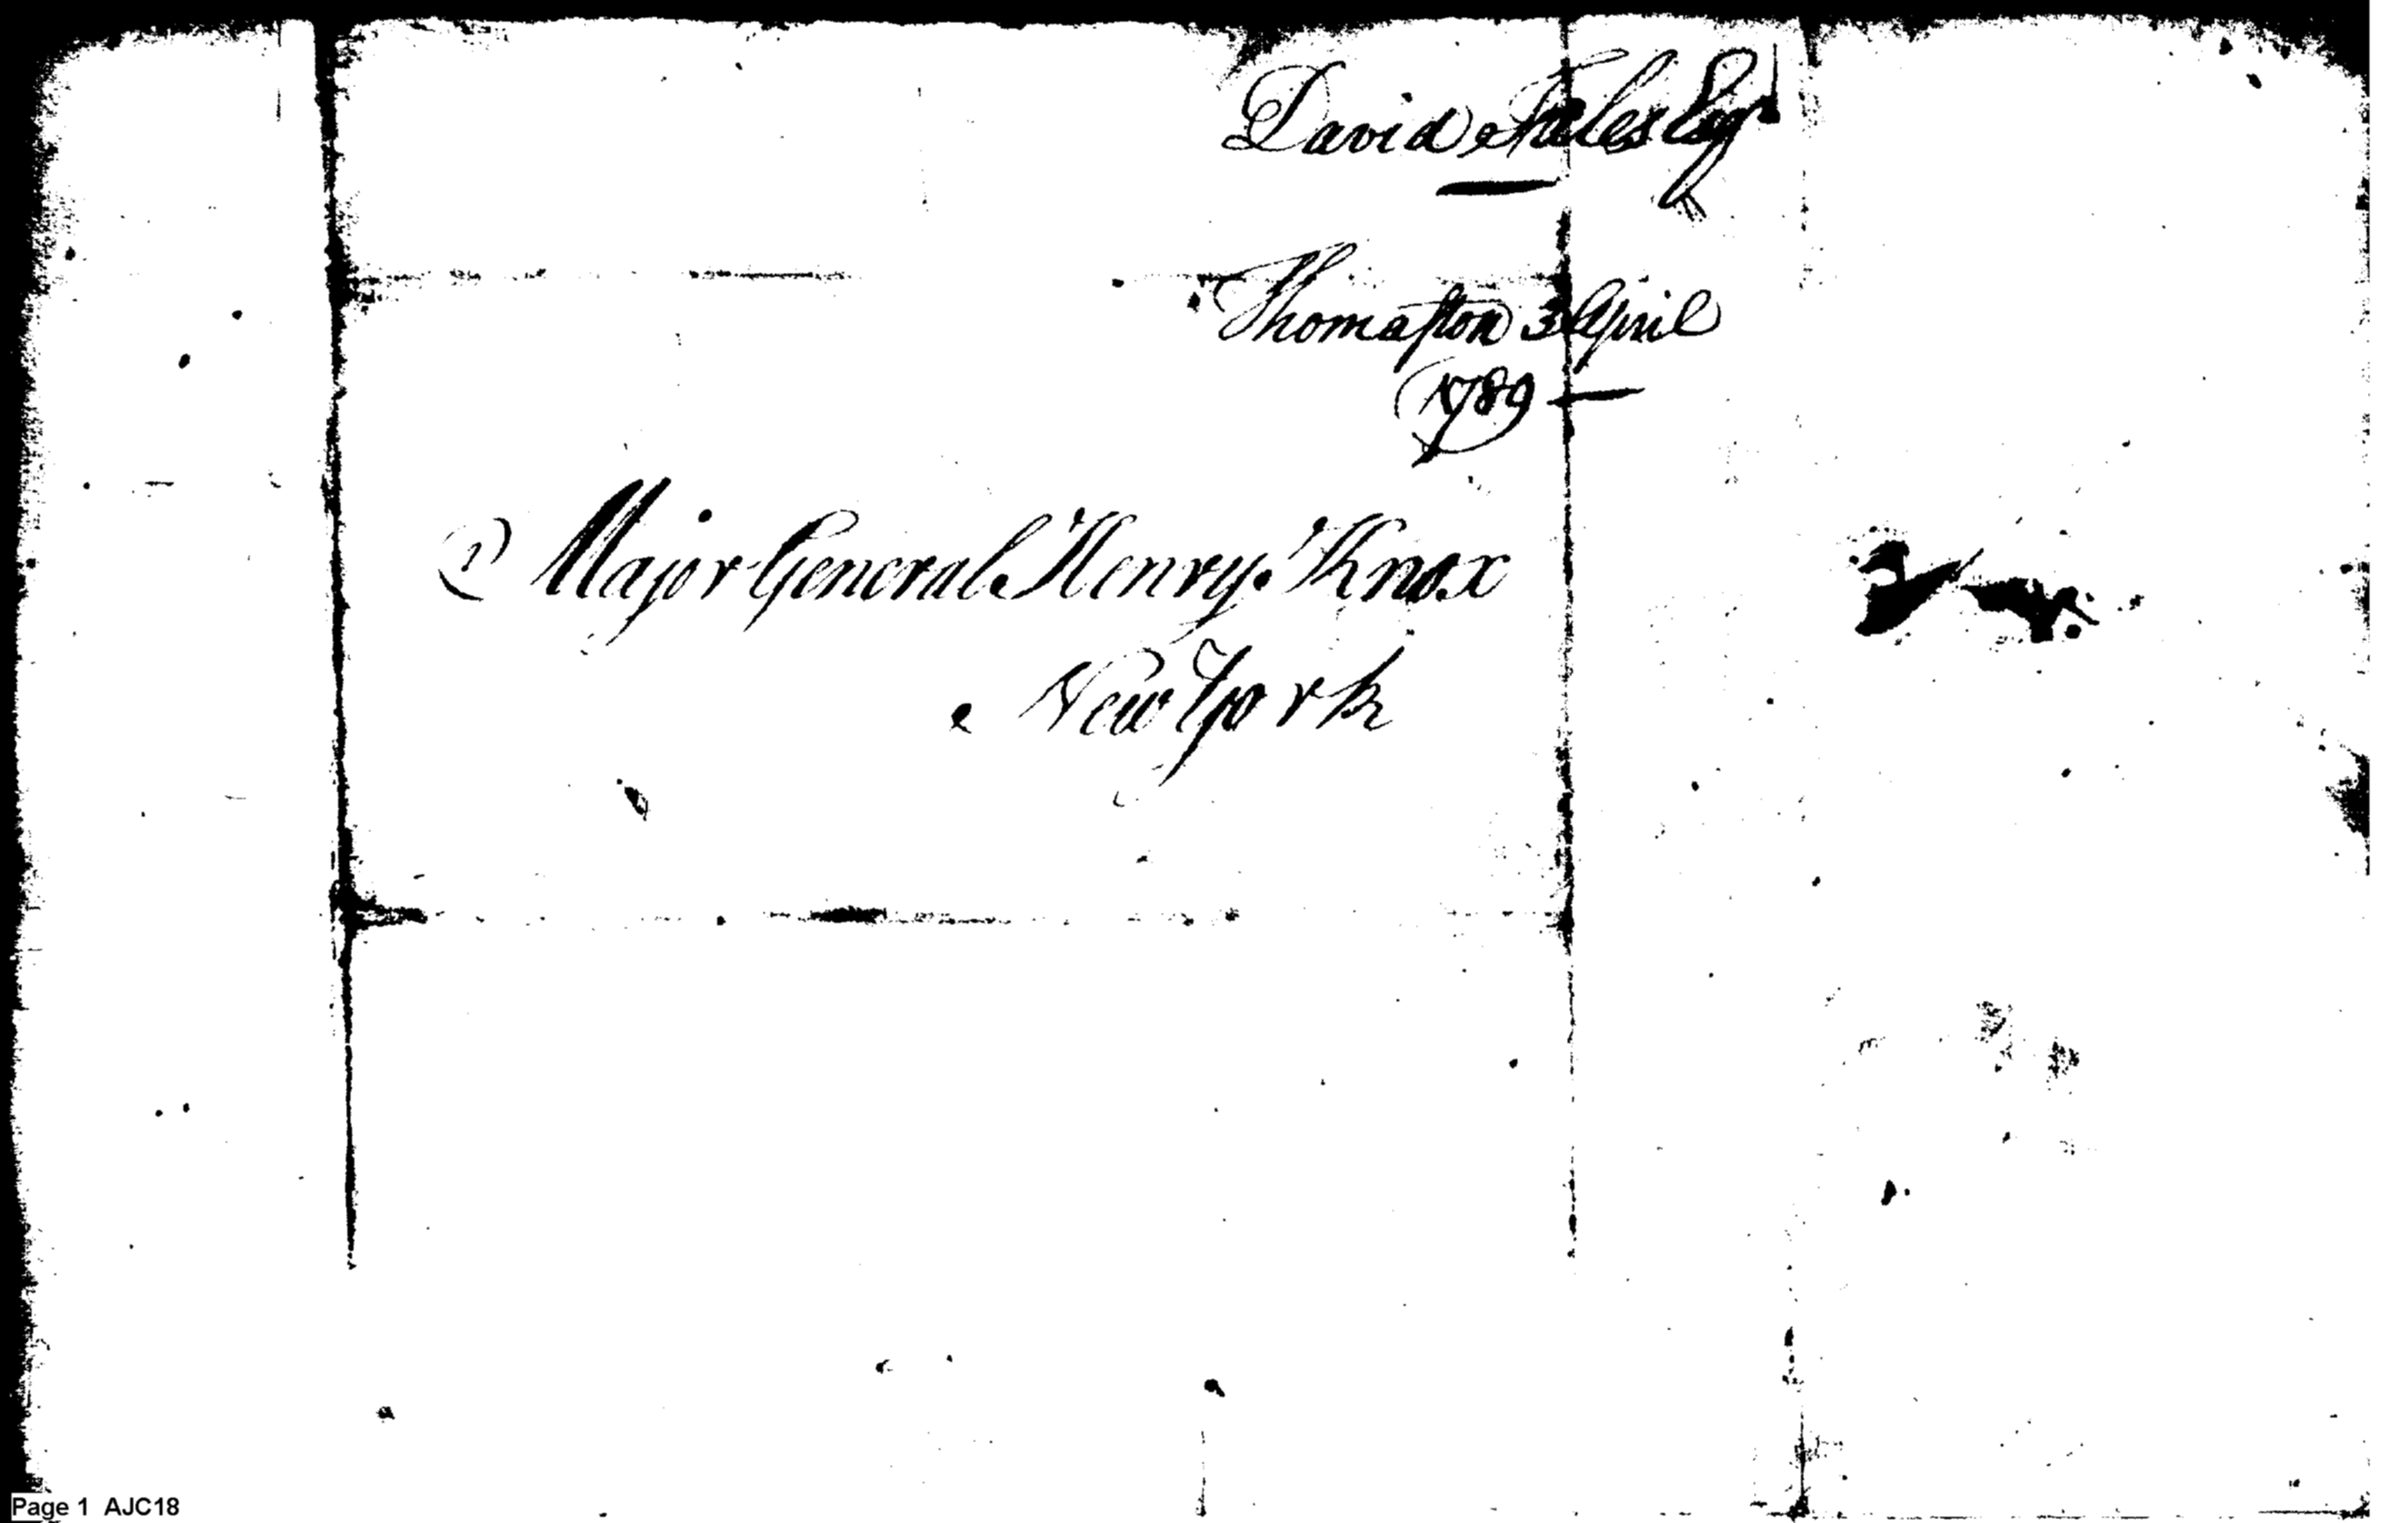 David Fales Esqr
Thomaston 3 April
1789 —
Major General Henry Knox
New York
Page 1 AJC18